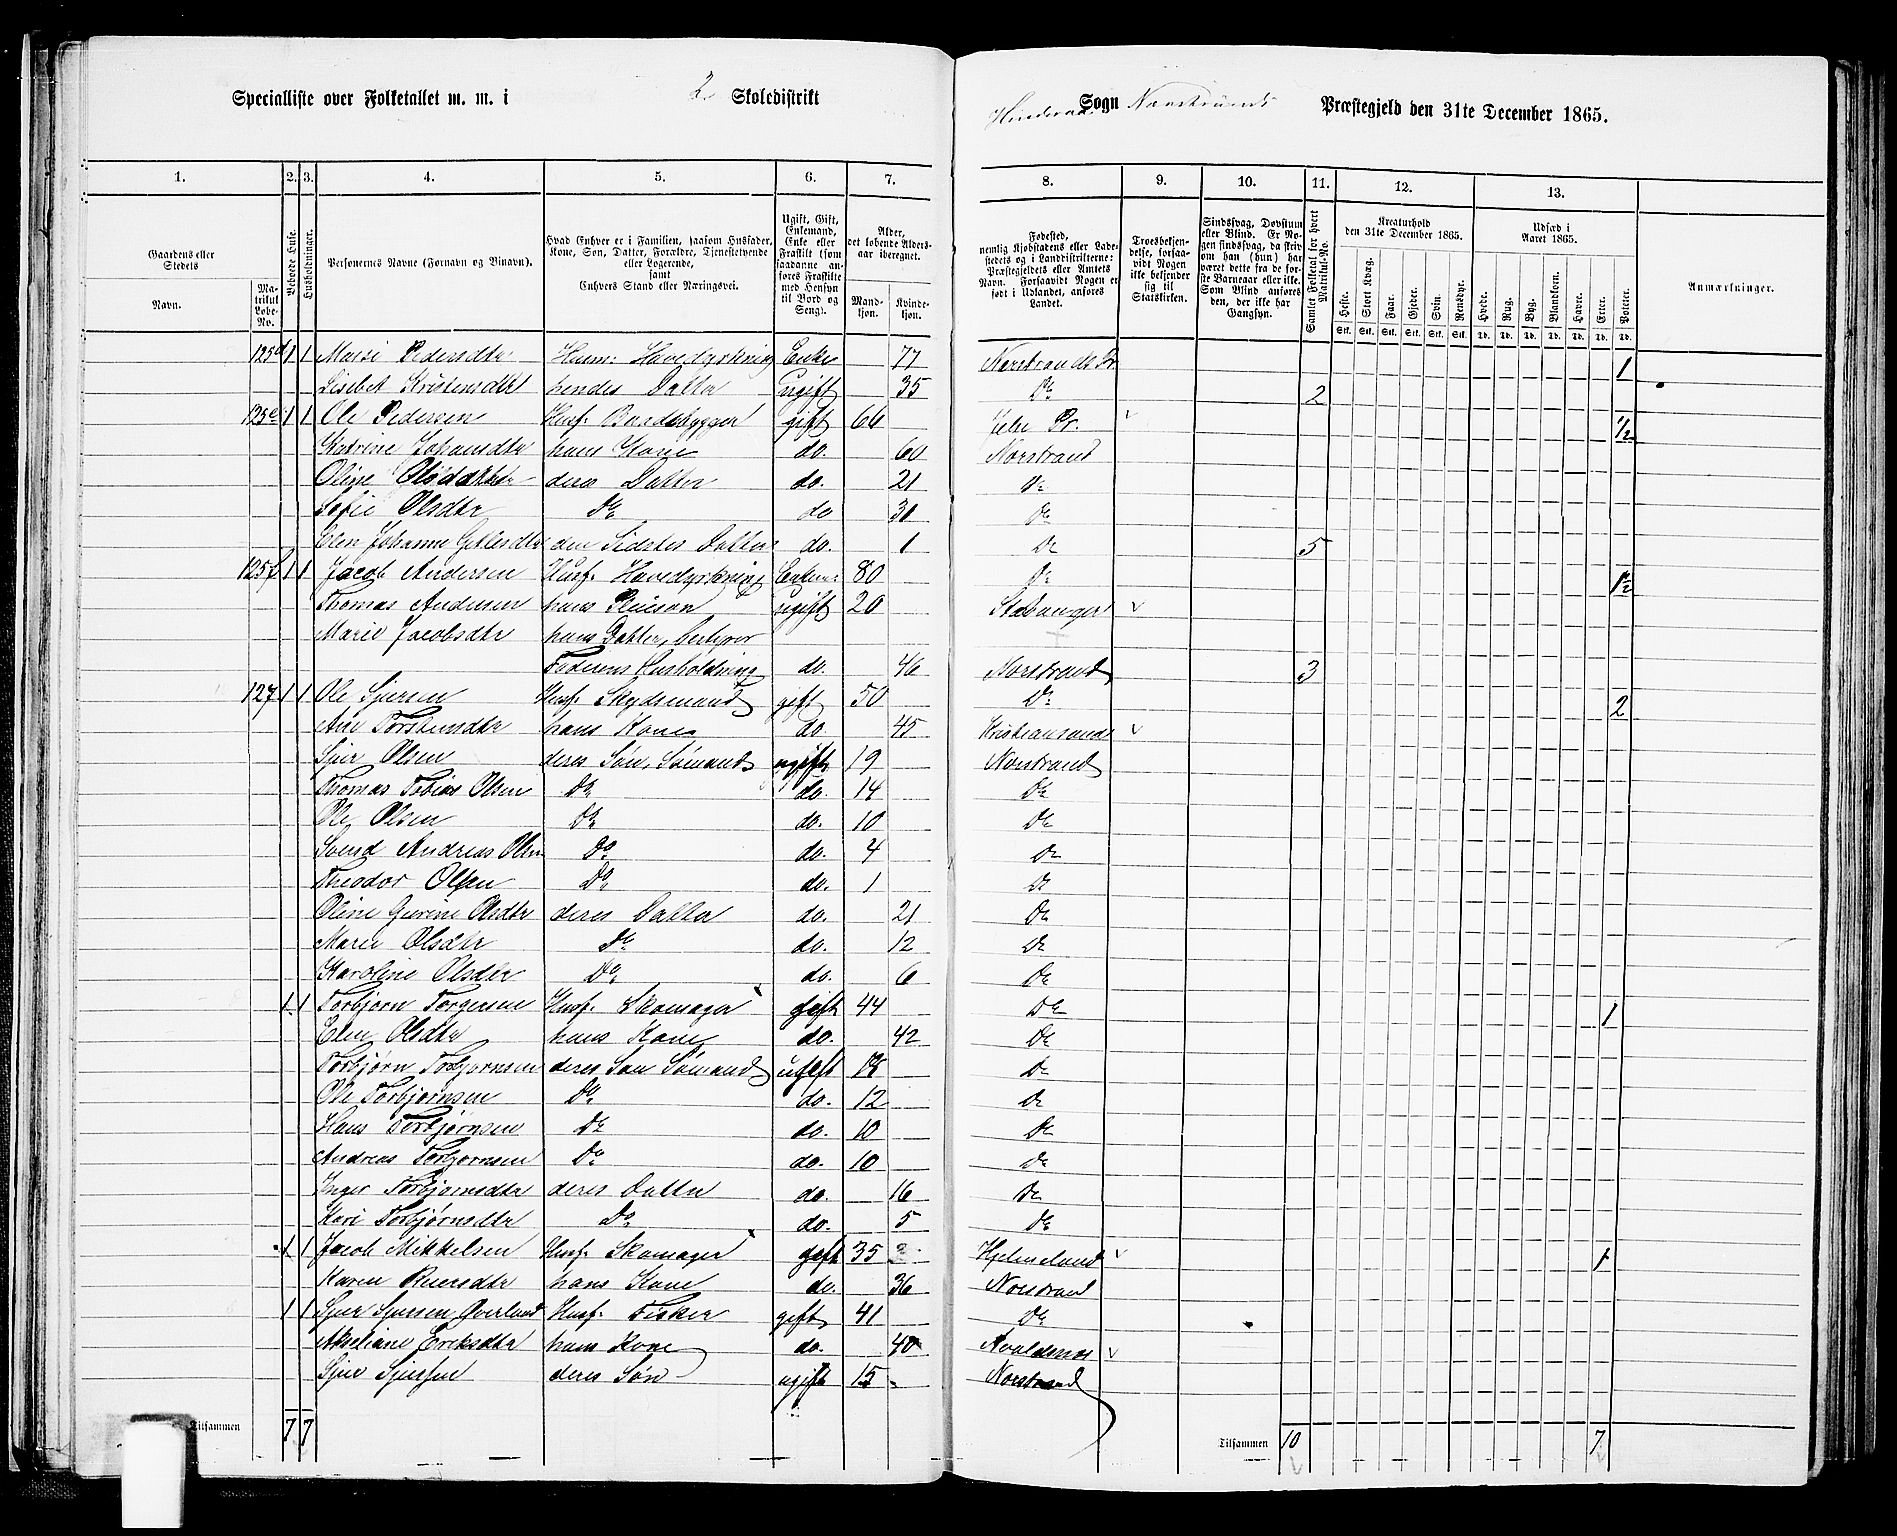 Specialliste over Folketallet m. m. i 2 Skoledistrikt Hinderaa Sogn Nærstrands Præstegjeld den 31te December 1865.
1. 2. 3. 4. 5. 6. 7. 8. 9. 10. 11. 12. 13.
Gaardens eller Stedets
Navn.
Matrikul Løbe-No.
Beboede Huse.
Husholdninger.
Personernes Navne (Fornavn og Binavn).
Hvad Enhver er i Familien, saasom Husfader, Kone, Søn, Datter, Forældre, Tjenestetyende eller Logerende, samt Enhvers Stand eller Næringsvei.
Ugift, Gift, Enkemand, Enke eller Fraskilt (som saadanne anføres Fraskilte med Hensyn til Bord og Seng).
Alder, det løbende Alders-aar iberegnet.
Mandkjøn.
Kvindekjøn.
Fødested, nemlig Kjøbstadens eller Ladestedets og i Landdistrikterne: Præstegjeldets eller Amtets Navn. Forsaavidt Nogen er født i Udlandet, anføres Landet.
Troesbekjendelse, forsaavidt Nogen ikke bekjender sig til Statskirken.
Sindssvag, Døvstum eller Blind. Er Nogen sindssvag, da skriv om han (hun) har været dette fra de første Barneaar eller ikke. Som Blind anføres den, der ikke har Gangsyn.
Samlet Folketal for hvert Matrikul-No.
Kreaturhold den 31te December 1865.
Heste. Stort Kvæg. Faar. Gjeder. Svin. Rensdyr.
Stk. Stk. Stk. Stk. Stk. Stk.
Udsæd i Aaret 1865.
Hvede. Rug. Byg. Blandkorn. Havre. Erter. Poteter.
Td. Td. Td. Td. Td. Td. Td.
Anmærkninger.
125d 1 1 Mari Pedersdtr Husm: Havedyrkning Enke 77 Nærstrands Pr. 1
Lisebet Kristensdtr hendes Datter ugift 35 Do 2
125e 1 1 Ole Pedersen Husf. Baadebygger gift 66 Jelse Pr. ½
Katrine Johansdtr hans Kone do. 60 Nærstrand
Oline Olsdatter deres Datter do. 21 Do
Sofie Olsdtr Do do 31 Do
Elen Johanne den Sidstes Datter do. 1 Do 5
125f 1 1 Jacob Andersen Husf. Havedyrkning Enkem: 80 Do 1½
Thomas Andersen hans Pleiesøn ugift 20 Stavanger
Marie Jacobsdtr hans Datter, bestyrer
Faderens Husholdning do. 46 Nærstrand 3
127 1 1 Ole Sjursen Husf. Skydsmand gift 50 Do 2
Ane Torstensdtr hans Kone do 45 Kristiansand
Sjur Olsen deres Søn, Sømand ugift 19 Nærstrand
Thomas Tobias Olsen Do do. 14 Do
Ole Olsen Do do. 10 Do
Svend Andreas Olsen Do do. 4 Do
Theodor Olsen Do do. 1 Do
Oline Gurine Olsdtr deres Datter do. 21 Do
Marie Olsdtr Do do. 12 Do
Karoline Olsdtr Do do. 6 Do
1 1 Torbjørn Torgersen Husf. Skomager gift 44 Do 1
Elen Olsdtr hans Kone do. 42 Do
Torbjørn Torbjørnsen deres Søn Sømand ugift 18 Do
Ole Torbjørnsen Do do. 12 Do
Hans Torbjørnsen Do do. 10 Do
Andreas Torbjørnsen Do do. 10 Do
Inger Torbjørnsdtr deres Datter do. 16 Do
Kari Torbjørnsdtr Do do. 5 Do
1 1 Jacob Mikkelsen Husf. Skomager gift 35 Hjelmeland 1
Karen hans Kone do. 36 Nærstrand
1 1 Sjur Sjursen Husf. Fisker gift 41 Do
Akseliane Eriksdtr hans Kone do. 40 Avaldsnes
Sjur Sjursen deres Søn ugift 15 Nærstrand
Tilsammen 7 7 Tilsammen 10 7